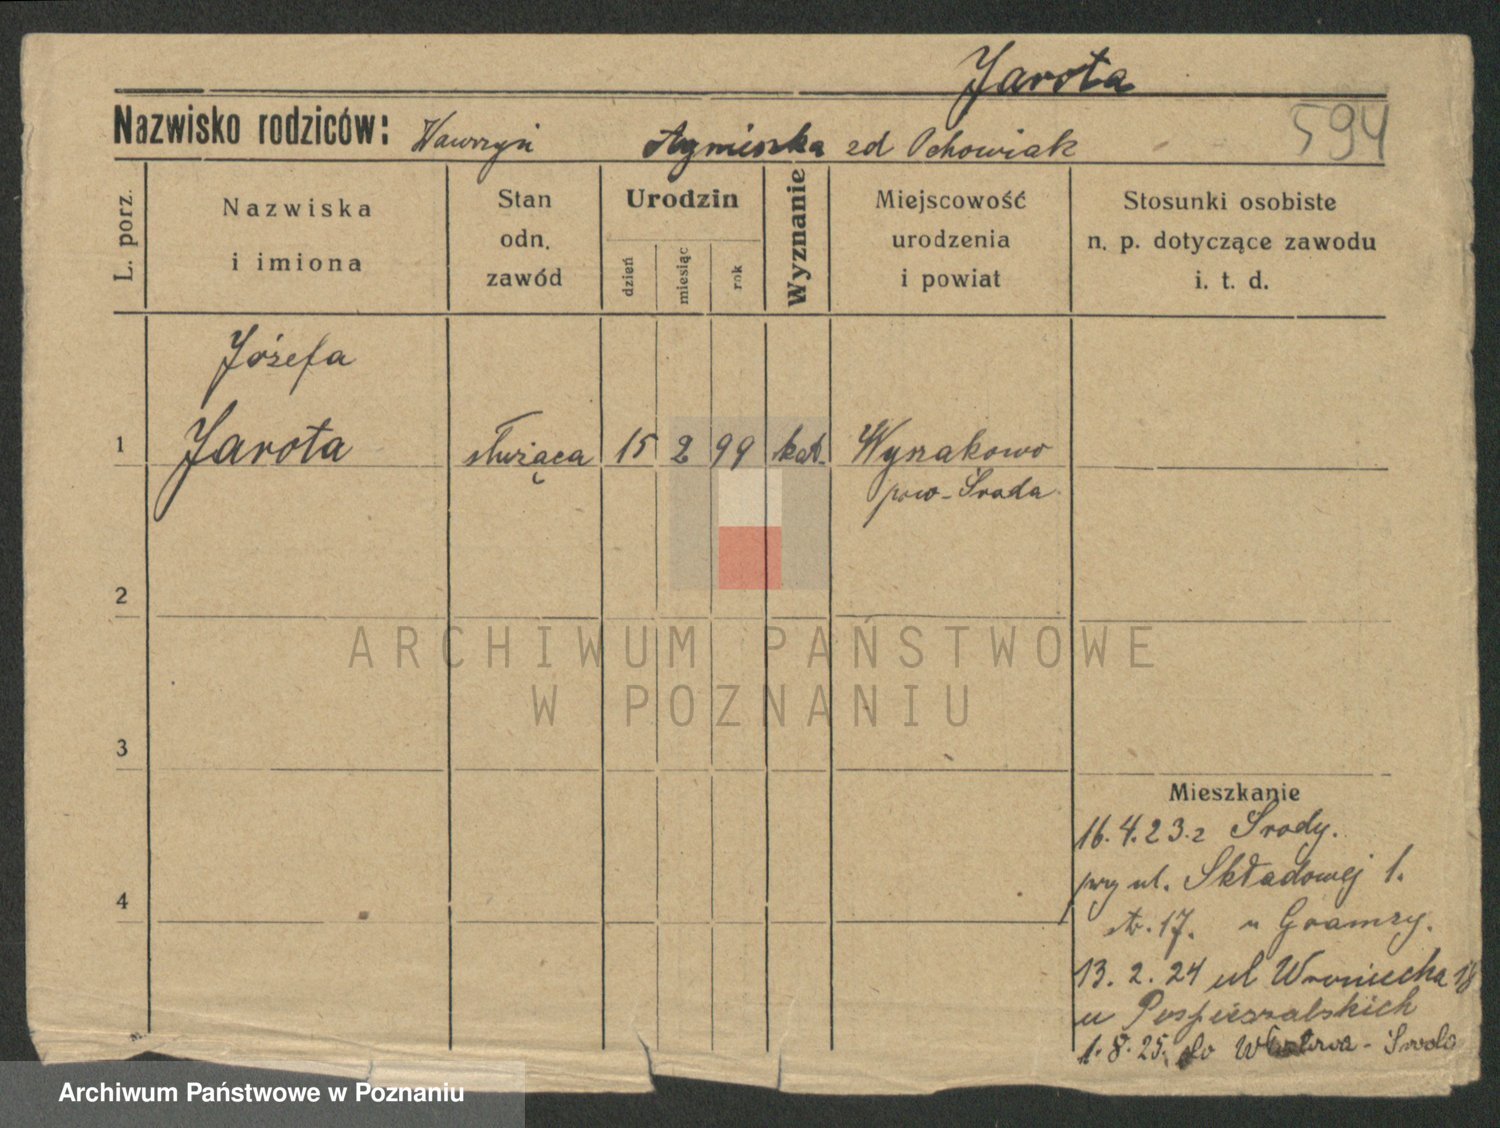 Jarota
Nazwisko rodziców: Wawrzyn Agnieszka zd Ochowiak
594
L. porz.
Nazwiska
i imiona
Stan
odn.
zawód
Urodzin
dzień
miesiąc
rok
Wyznanie
Miejscowość
urodzenia
i powiat
Stosunki osobiste
n. p. dotyczące zawodu
i. t. d.
Józefa
1 Jarota służąca 15 2 99 kat. Wyszakowo
pow-Środa
2
ARCHIWUM PAŃSTWOWE
W POZNANIU
3
Mieszkanie
16.4.23. z Środy.
przy ul. Składowej 1.
4
17. u Gramzy.
13. 2. 24 ul Wroniecka 18
u Pospieszalskich
1. 8. 25. do - Środa
Archiwum Państwowe w Poznaniu